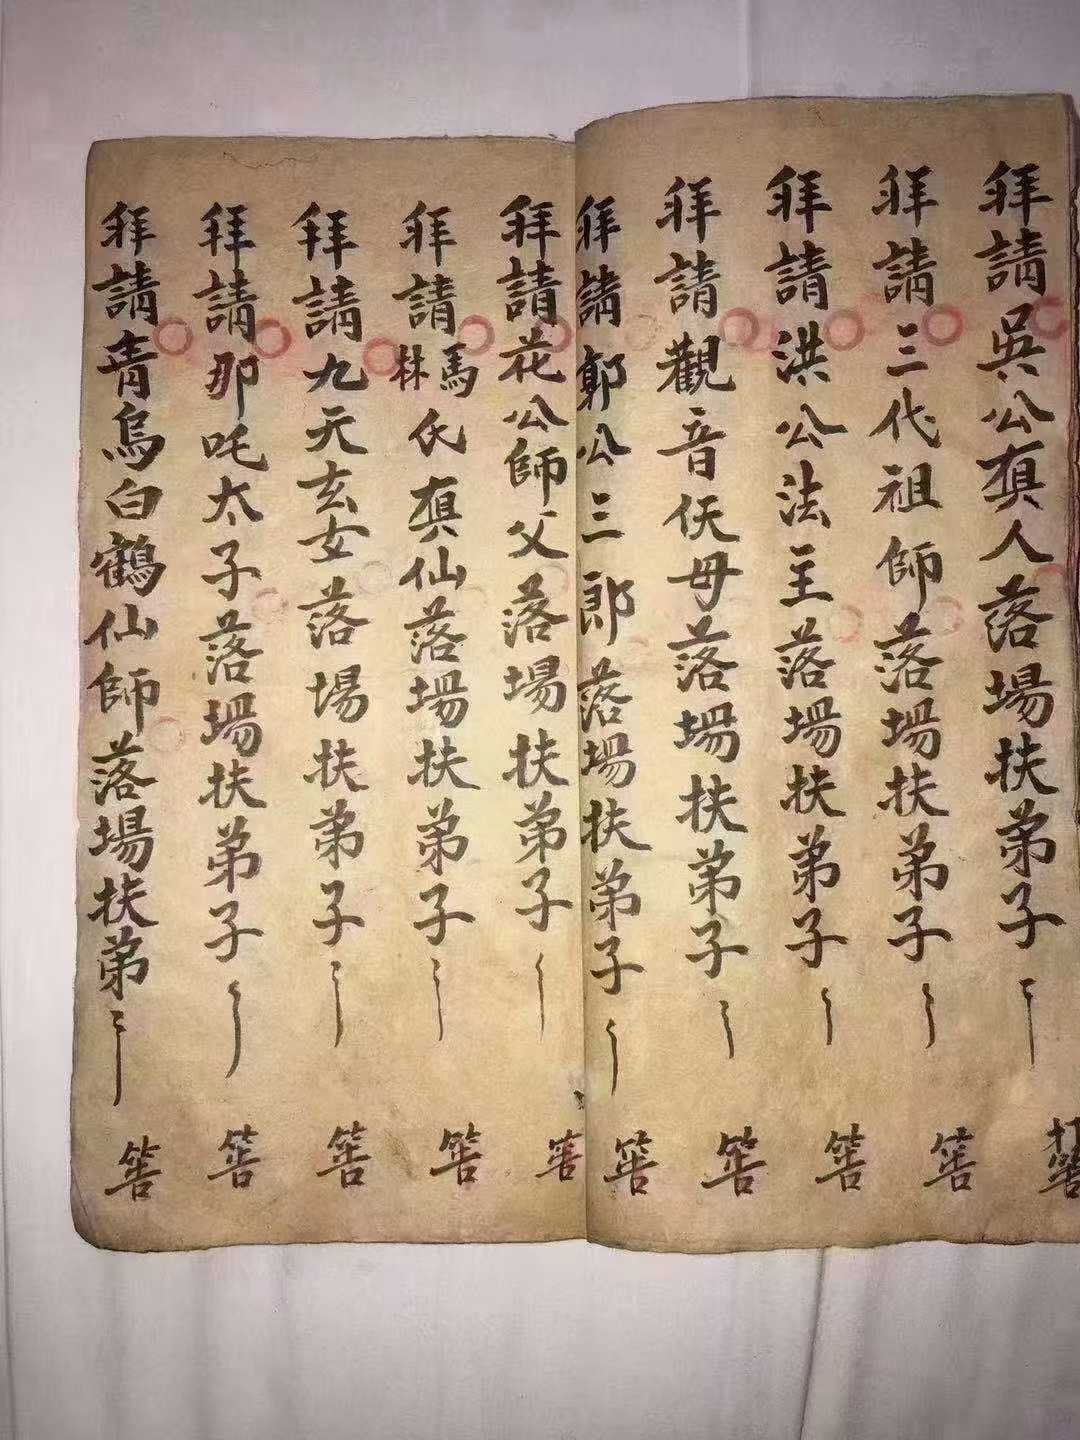 拜請吳公真人落場扶弟子 打筶
拜請三代祖師落場扶弟子 筶
拜請洪公法主落場扶弟子 筶
拜請觀音佛母落場扶弟子 筶
拜請鄭公三郎落場扶弟子 筶
拜請花公師父落場扶弟子 筶
拜請馬林氏真仙落場扶弟子 筶
拜請九天玄女落場扶弟子 筶
拜請那吒太子落場扶弟子 筶
拜請青烏白鶴仙師落場扶弟 筶